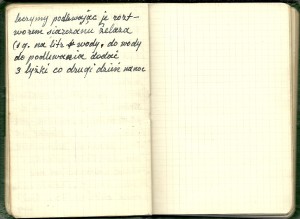 leczymy podlewając je rozt-
worem siarczanu żelaza
(1 g. na litr wody, do wody
do podlewania dodać
3 łyżki co drugi dzień na noc